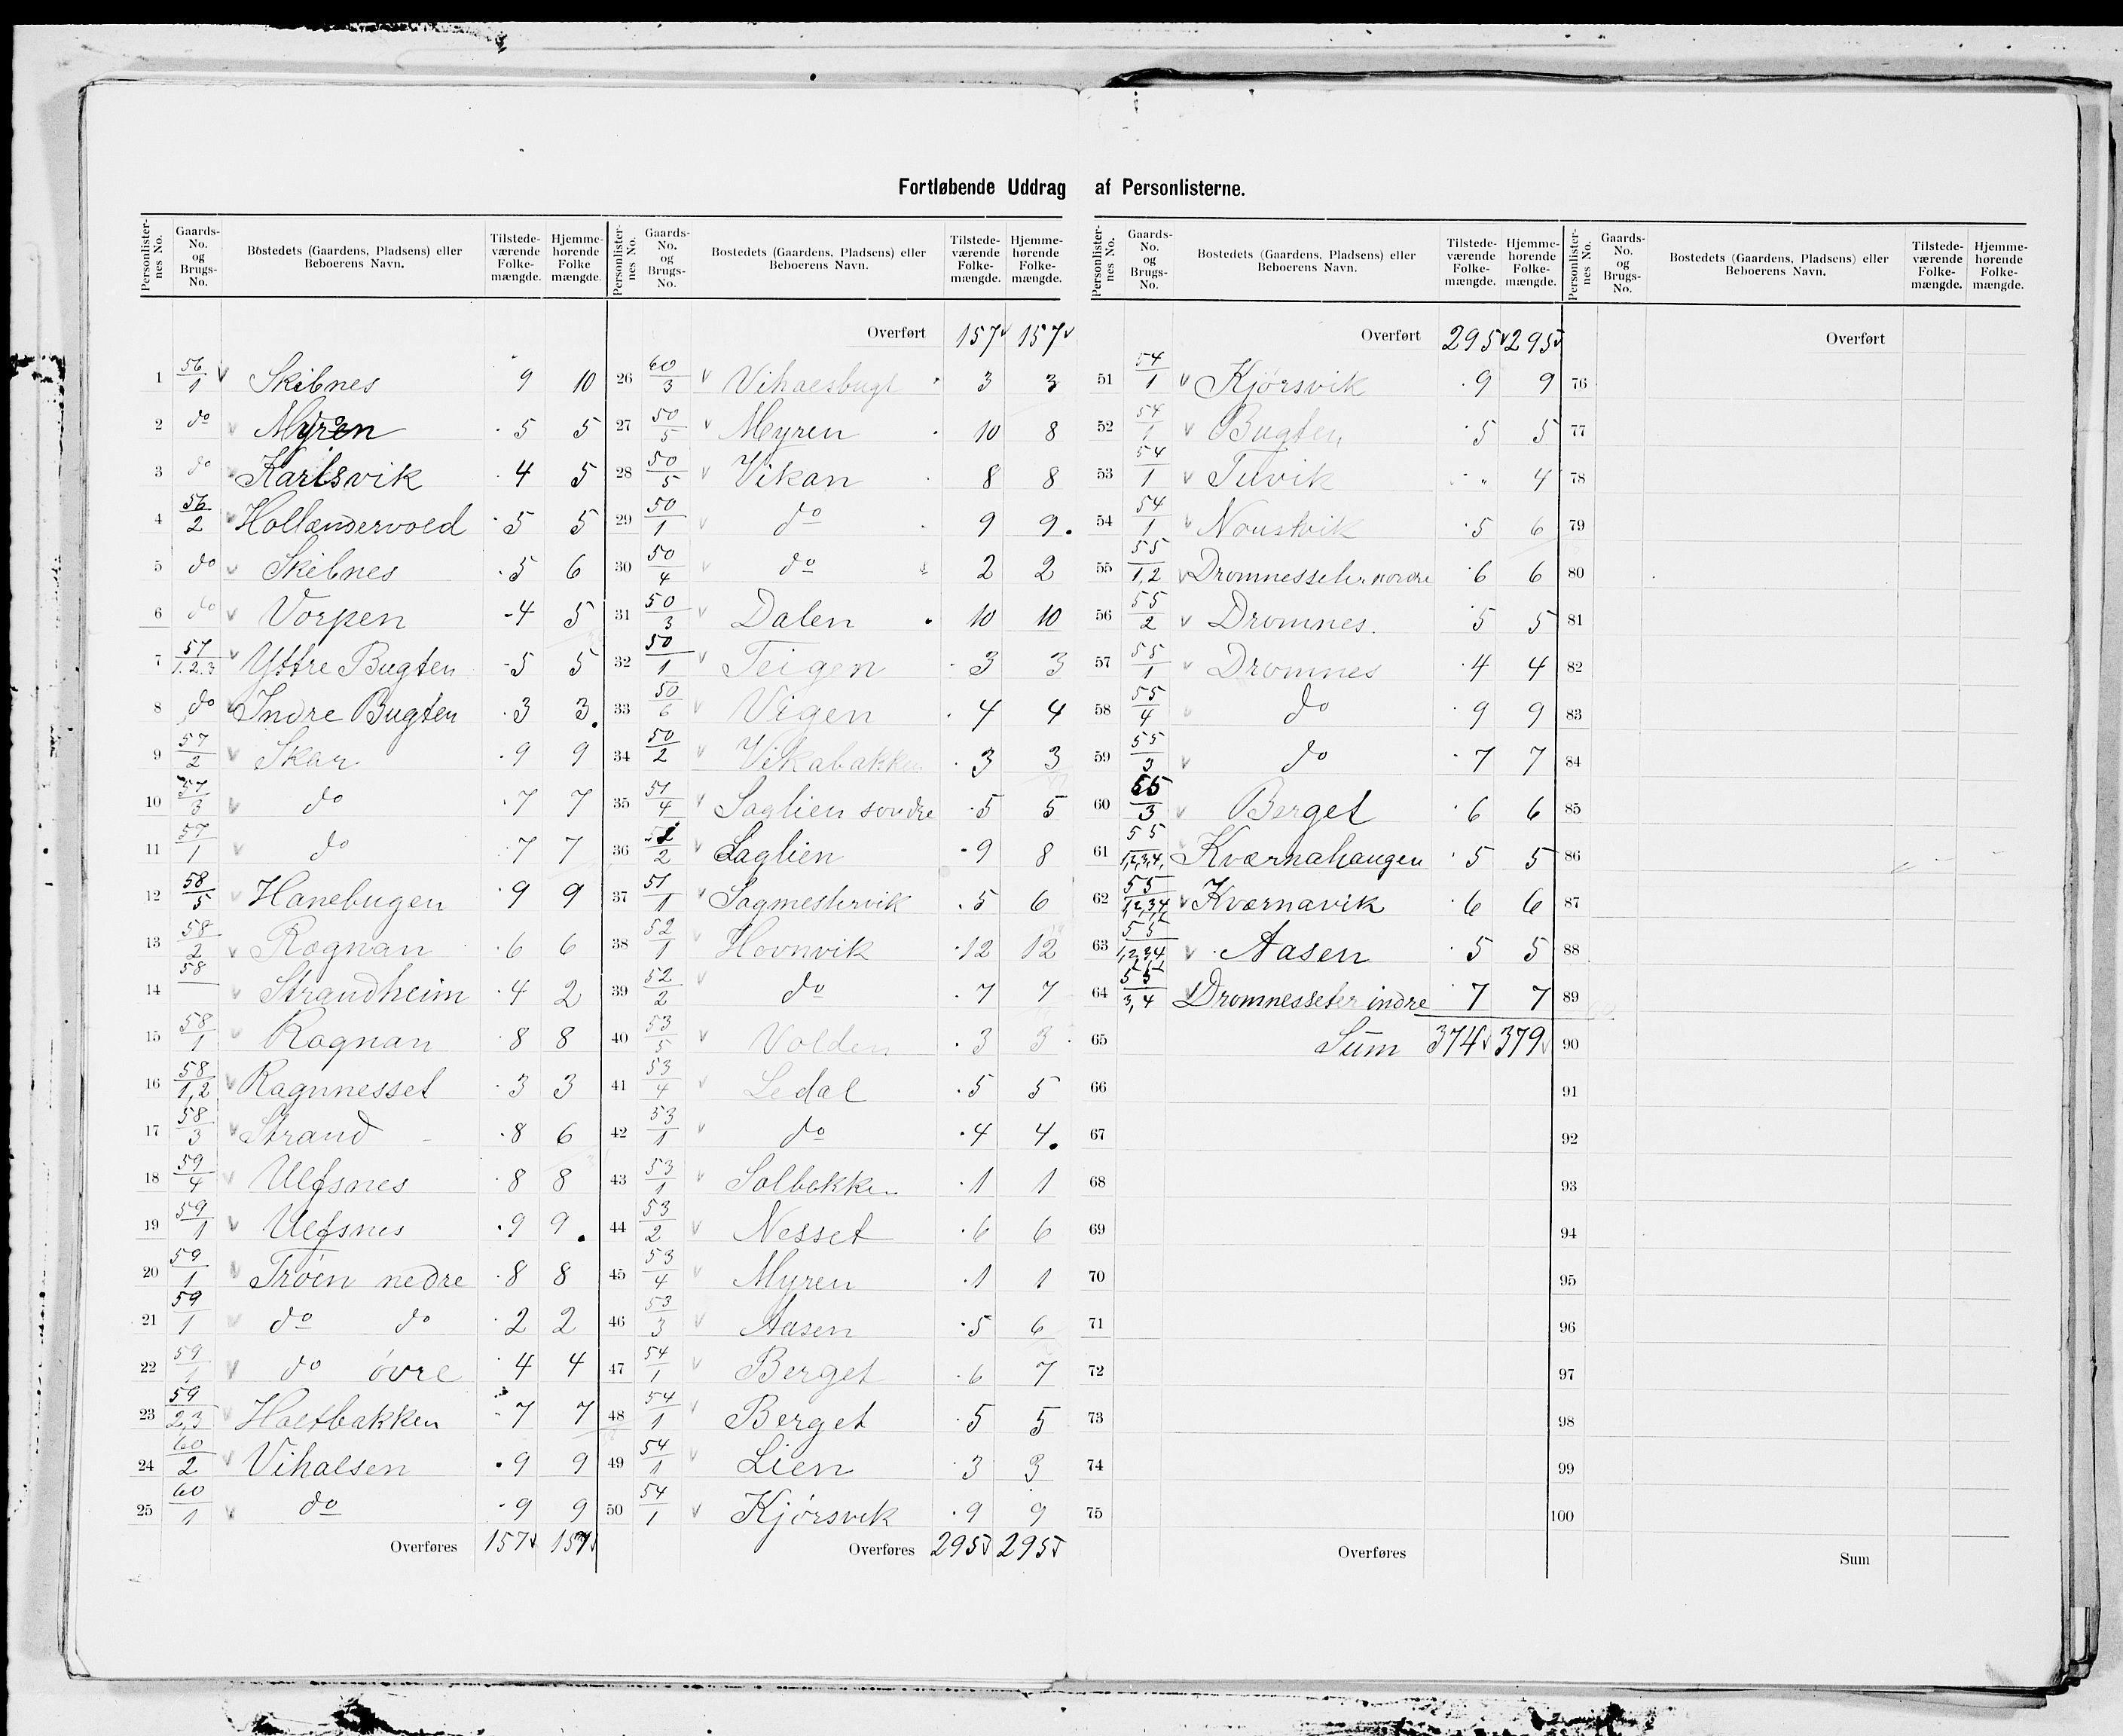 Fortløbende Uddrag af Personlisterne.
Personlister-nes No. Gaards-No. og Brugs-No. Bostedets (Gaardens, Pladsens) eller Beboerens Navn. Tilstede-værende Folke-mængde. Hjemme-hørende Folke mængde.
1 56/1 v Skibnes 9 10
2 do v Myren 5 5
3 do v Karlsvik 4 5
4 56/2 v Hollændervold 5 5
5 do v Skibnes 5 6
6 do v Vorpen 4 5
7 57/1.2.3 v Yttre Bugten 5 5
8 do v Indre Bugten 3 3
9 57/2 v Skar 9 9
10 57/3 v do 7 7
11 57/1 v do 7 7
12 58/5 v Hanebugen 9 9
13 58/2 v Rognan 6 6
14 58 v Strandheim 4 2
15 58/1 v Rognan 8 8
16 58/1,2 v Ragnnesset 3 3
17 58/3 v Strand 8 6
18 59/4 v Ulfsnes 8 8
19 59/1 v Ulfsnes 9 9
20 59/1 v Trøen nedre 8 8
21 59/1 v do do 2 2
22 59/1 v do øvre 4 4
23 59/2,3 v Holtbakken 7 7
24 60/2 v Vihalsen 9 9
25 60/1 v do 9 9
Overføres 157 v 157 v
Personlister-nes No. Gaards-No. og Brugs-No. Bostedets (Gaardens, Pladsens) eller Beboerens Navn. Tilstede-værende Folke-mængde. Hjemme-hørende Folke-mængde.
Overført 157 v 157 v
26 60/3 v Vihalsbugt 3 3
27 50/5 v Myren 10 8
28 50/5 v Vikan 8 8
29 50/1 v do 9 9
30 50/4 v do 2 2
31 50/3 v Dalen 10 10
32 50/1 v Teigen 3 3
33 50/6 v Vigen 4 4
34 50/2 v Vikabakken 3 3
35 51/4 v Saglien søndre 5 5
36 51/2 v Saglien 9 8
37 51/1 v Sagmestervik 5 6
38 52/1 v Hovnvik 12 12
39 52/2 v do 7 7
40 53/5 v Volden 3 3
41 53/4 v Ledal 5 5
42 53/1 v do 4 4
43 53/1 v Solbakken 1 1
44 53/2 v Nesset 6 6
45 53/4 v Myren 1 1
46 53/3 v Aasen 5 6
47 54/1 v Berget 6 7
48 54/1 v Berget 5 5
49 54/1 v Lien 3 3
50 54/1 v Kjørsvik 9 9
Overføres 295 v 295 v
Personlister-nes No. Gaards-No. og Brugs-No. Bostedets (Gaardens, Pladsens) eller Beboerens Navn. Tilstede-værende Folke-mængde. Hjemme-hørende Folke-mængde.
Overført 295 v 295 v
51 54/1 v Kjørsvik 9 9
52 54/1 v Bugten 5 5
53 54/1 v Tilvik " 4
54 54/1 v Naustvik 5 6
55 55/1,2 v Dromnesseter nordre 6 6
56 55/2 v Dromnes. 5 5
57 55/1 v Dromnes 4 4
58 55/4 v do 9 9
59 55/3 v do 7 7
60 55/3 v Berget 6 6
61 55/1,2,3,4, Kværnahaugen 5 5
62 55/1,2,3,4 v Kværnavik 6 6
63 55/1,2,3,4 v Aasen 5 5
64 55/3,4 v Dromnesseter indre 7 7
65 Sum 374 v 379 v
66
67
68
69
70
71
72
73
74
75
Overføres
Personlister-nes No. Gaards-No. og Brugs-No. Bostedets (Gaardens, Pladsens) eller Beboerens Navn. Tilstede-værende Folke-mængde. Hjemme-hørende Folke-mængde.
Overført
76
77
78
79
80
81
82
83
84
85
86
87
88
89
90
91
92
93
94
95
96
97
98
99
100
Sum